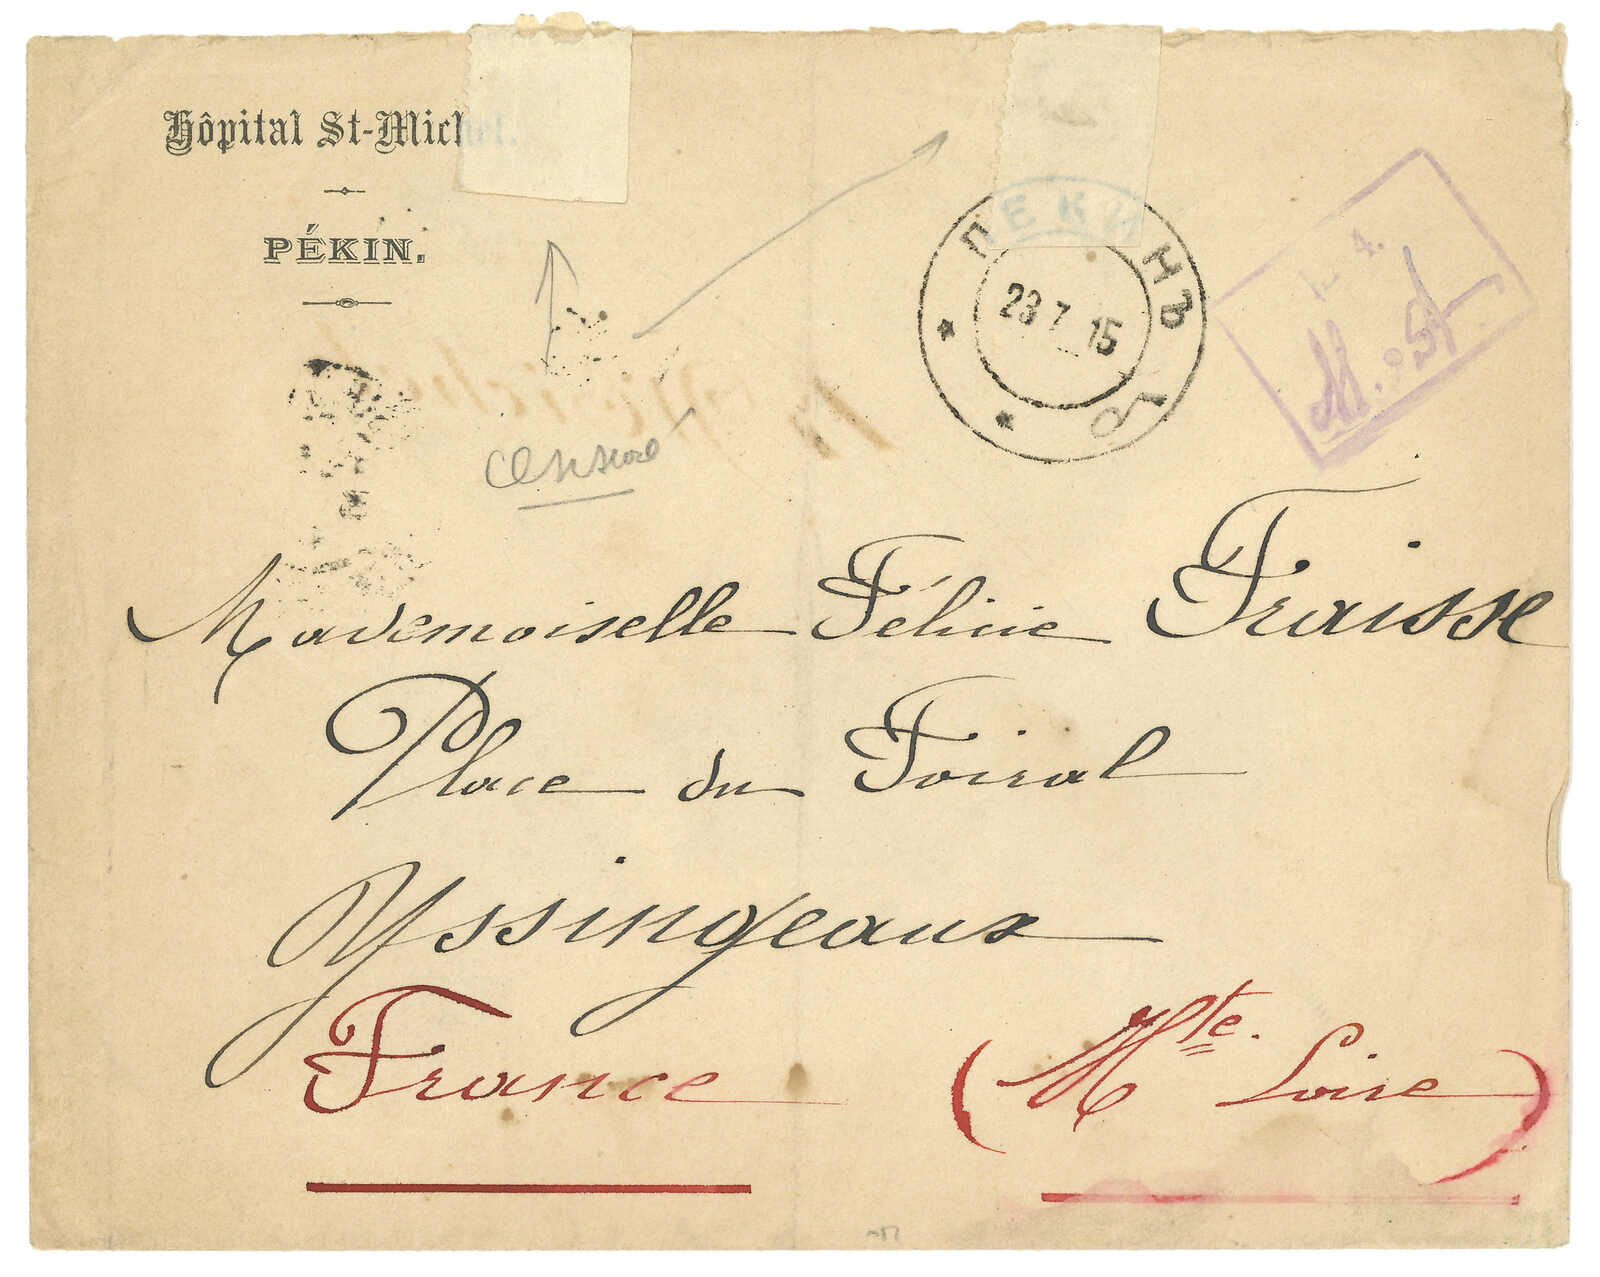 Hôpital St-Michel.
PÉKIN.
ПЕКИНЪ
23 7 15
4.
censure
Mademoiselle Félicie Fraisse
Place du Foiral
Yssingeaux
France (Hte. Loire)